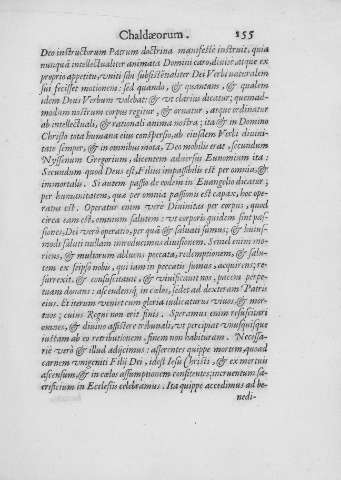 Chaldæorum. 155
Deo instructorum Patrum doctrina manifestè instruit, quia
nunquã intellectualiter animata Domini caro, diuisè, atque ex
proprio appetitu, vniti sibi substẽtialiter Dei Verbi naturalem
sui fecisset motionem: sed quando, & quantam, & qualem
idem Deus Verbum volebat; & vt clarius dicatur; quemad-
modum nostrum corpus regitur, & ornatur, atque ordinatur
ab intellectuali, & rationali anima nostra; ita & in Domino
Christo tota humana eius conspersio, ab eiusdem Verbi diuini-
tate semper, & in omnibus mota, Deo mobilis erat, secundum
Nyssenum Gregorium, dicentem aduersus Eunomium ita:
Secundum quod Deus est, Filius impassibilis est per omnia, &
immortalis. Si autem passio de eodem in Euangelio dicatur;
per humanitatem, qua per omnia passionis est capax, hoc ope-
ratus est. Operatur enim verè Diuinitas per corpus, quod
circa eam est, omnium salutem: vt corporis quidem sint pas-
siones; Dei verò operatio, per quã & saluati sumus; & huius-
modi saluti nullam introducimus diuisionem. Semel enim mo-
riens, & multorum abluens peccata, redemptionem, & salu-
tem ex seipso nobis, qui iam in peccatis sumus, acquirens; re-
surrexit, & consuscitauit, & viuificauit nos, pacem perpe-
tuam donans: ascendensq; in cœlos, sedet ad dexteram Patris
eius. Et iterum veniet cum gloria iudicaturus viuos, & mor-
tuos; cuius Regni non erit finis. Speramus enim resuscitari
omnes, & diuino assistere tribunali, vt percipiat vnusquisque
iustam ab eo retributionem, finem non habituram. Necessa-
riè verò & illud adijcimus: asserentes quippe mortem, quoad
carnem vnigeniti Filij Dei, idest Iesu Christi, & ex mortuis
ascensum, & in cœlos assumptionem confitentes; incruentum sa-
crificium in Ecclesijs celebramus. Ita quippe accedimus ad be-
nedi-